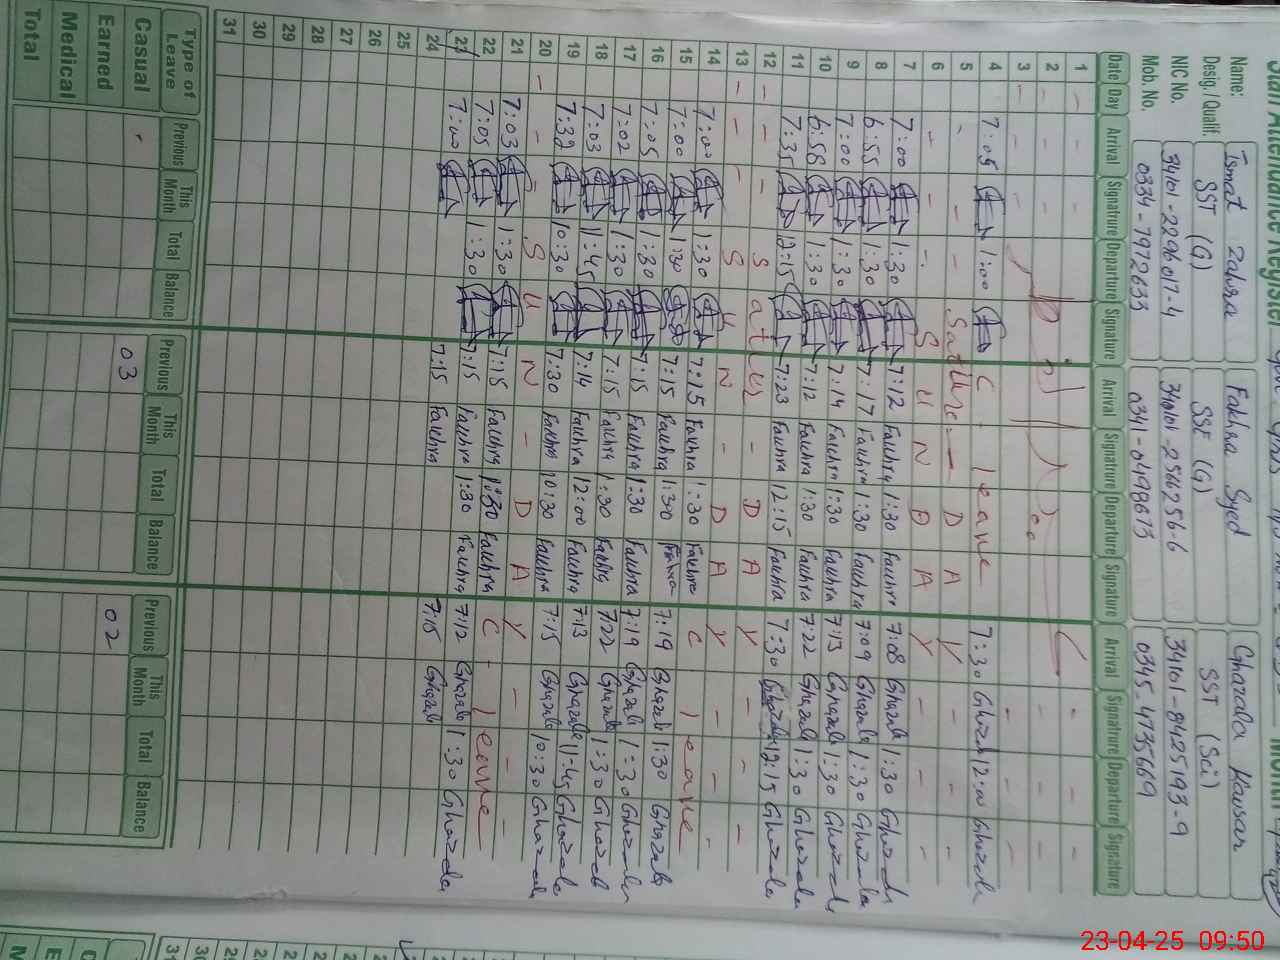 Staff Attendance Register
Name: Ismat Zahra Fakhra Syed Ghazala Kausar
Desig. / Qualif. SST (G) SSE (G) SST (Sci)
NIC No. 34101-2296017-4 34101-2566256-6 34101-8425193-9
Mob. No. 0334-7972633 0341-0498673 0345-4735669
Date Day Arrival Signature Departure Signature Arrival Signature Departure Signature Arrival Signature Departure Signature
1 - -
2 - -
3 - -
4 7:05 1:00 C. leave 7:30 Ghazala 12:00 Ghazala
5 - - Satur - D A Y - -
6 - - S U N D A Y - -
7 7:00 1:30 7:12 Fakhra 1:30 Fakhra 7:08 Ghazala 1:30 Ghazala
8 6:55 1:30 7:17 Fakhra 1:30 Fakhra 7:09 Ghazala 1:30 Ghazala
9 7:00 1:30 7:14 Fakhra 1:30 Fakhra 7:13 Ghazala 1:30 Ghazala
10 6:58 1:30 7:12 Fakhra 1:30 Fakhra 7:22 Ghazala 1:30 Ghazala
11 7:35 12:15 7:23 Fakhra 12:15 Fakhra 7:30 Ghazala 12:15 Ghazala
12 - - S a t u r - D A Y - -
13 - - S U N - D A Y - -
14 7:00 1:30 7:15 Fakhra 1:30 Fakhra C leave
15 7:00 1:30 7:15 Fakhra 1:30 Fakhra 7:19 Ghazala 1:30 Ghazala
16 7:05 1:30 7:15 Fakhra 1:30 Fakhra 7:19 Ghazala 1:30 Ghazala
17 7:02 1:30 7:15 Fakhra 1:30 Fakhra 7:22 Ghazala 1:30 Ghazala
18 7:03 11:45 7:14 Fakhra 12:00 Fakhra 7:13 Ghazala 11:45 Ghazala
19 7:39 10:30 7:30 Fakhra 10:30 Fakhra 7:15 Ghazala 10:30 Ghazala
20 - - S U N - D A Y - -
21 7:03 1:30 7:15 Fakhra 1:30 Fakhra C - leave
22 7:05 1:30 7:15 Fakhra 1:30 Fakhra 7:12 Ghazala 1:30 Ghazala
23 7:00 7:15 Fakhra 7:15 Ghazala
24
25
26
27
28
29
30
31
Type of Leave Previous This Month Total Balance Previous This Month Total Balance Previous This Month Total Balance
Casual 03 02
Earned
Medical
Total
23-04-25 09:50